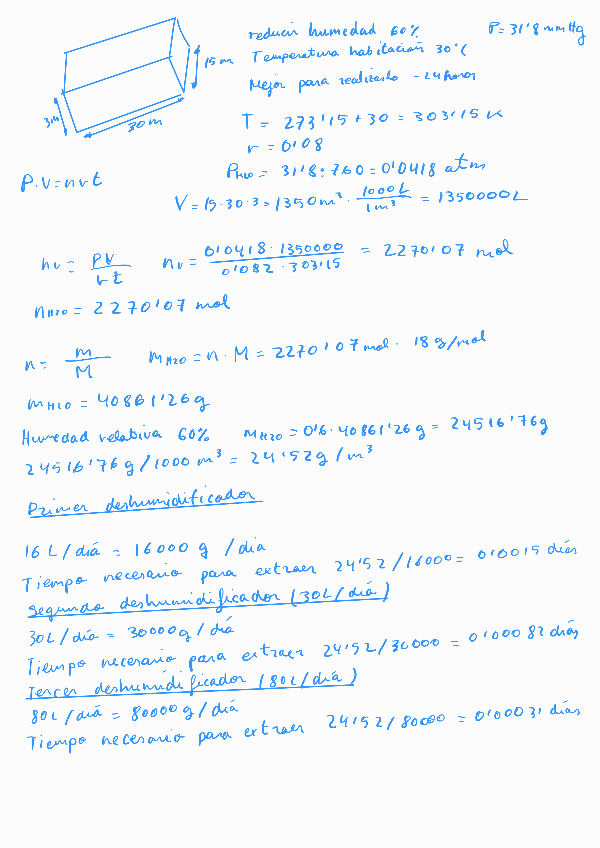 reducir humedad 60% P=31'8 mmHg
15 m Temperatura habitación 30°C
Mejor para realizarlo -24horas
3m
30 m
T = 273'15 + 30 = 303'15 K
r = 0'08
P H2O = 31'8 : 760 = 0'0418 atm
P.V=nrt
V = 15·30·3 = 1350 m³ · 1000L / 1m³ = 1350000L
nv = PV / rt nv = 0'0418 · 1350000 / 0'082 · 303'15 = 2270'07 mol
nH2O = 2270'07 mol
n = m / M mH2O = n · M = 2270'07 mol · 18 g/mol
mH2O = 40861'26g
Humedad relativa 60% mH2O = 0'6 · 40861'26 g = 24516'76g
24516'76 g/1000 m³ = 24'52 g/m³
Primer deshumidificador
16 L / diá = 16000 g /dia
Tiempo necesario para extraer 24'52/16000 = 0'0015 diás
Segundo deshumidificador (30L/diá)
30L/diá = 30000g/diá
Tiempo necesario para extraer 24'52/30000 = 0'00082 diás
Tercer deshumidificador (80L/diá)
80L/diá = 80000g/diá
Tiempo necesario para extraer 24'52/80000 = 0'00031 diás